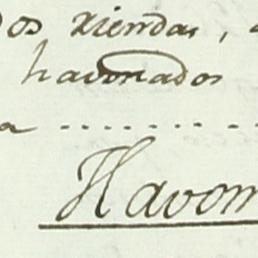 dos riendas,
havonados
a ..........
Havon